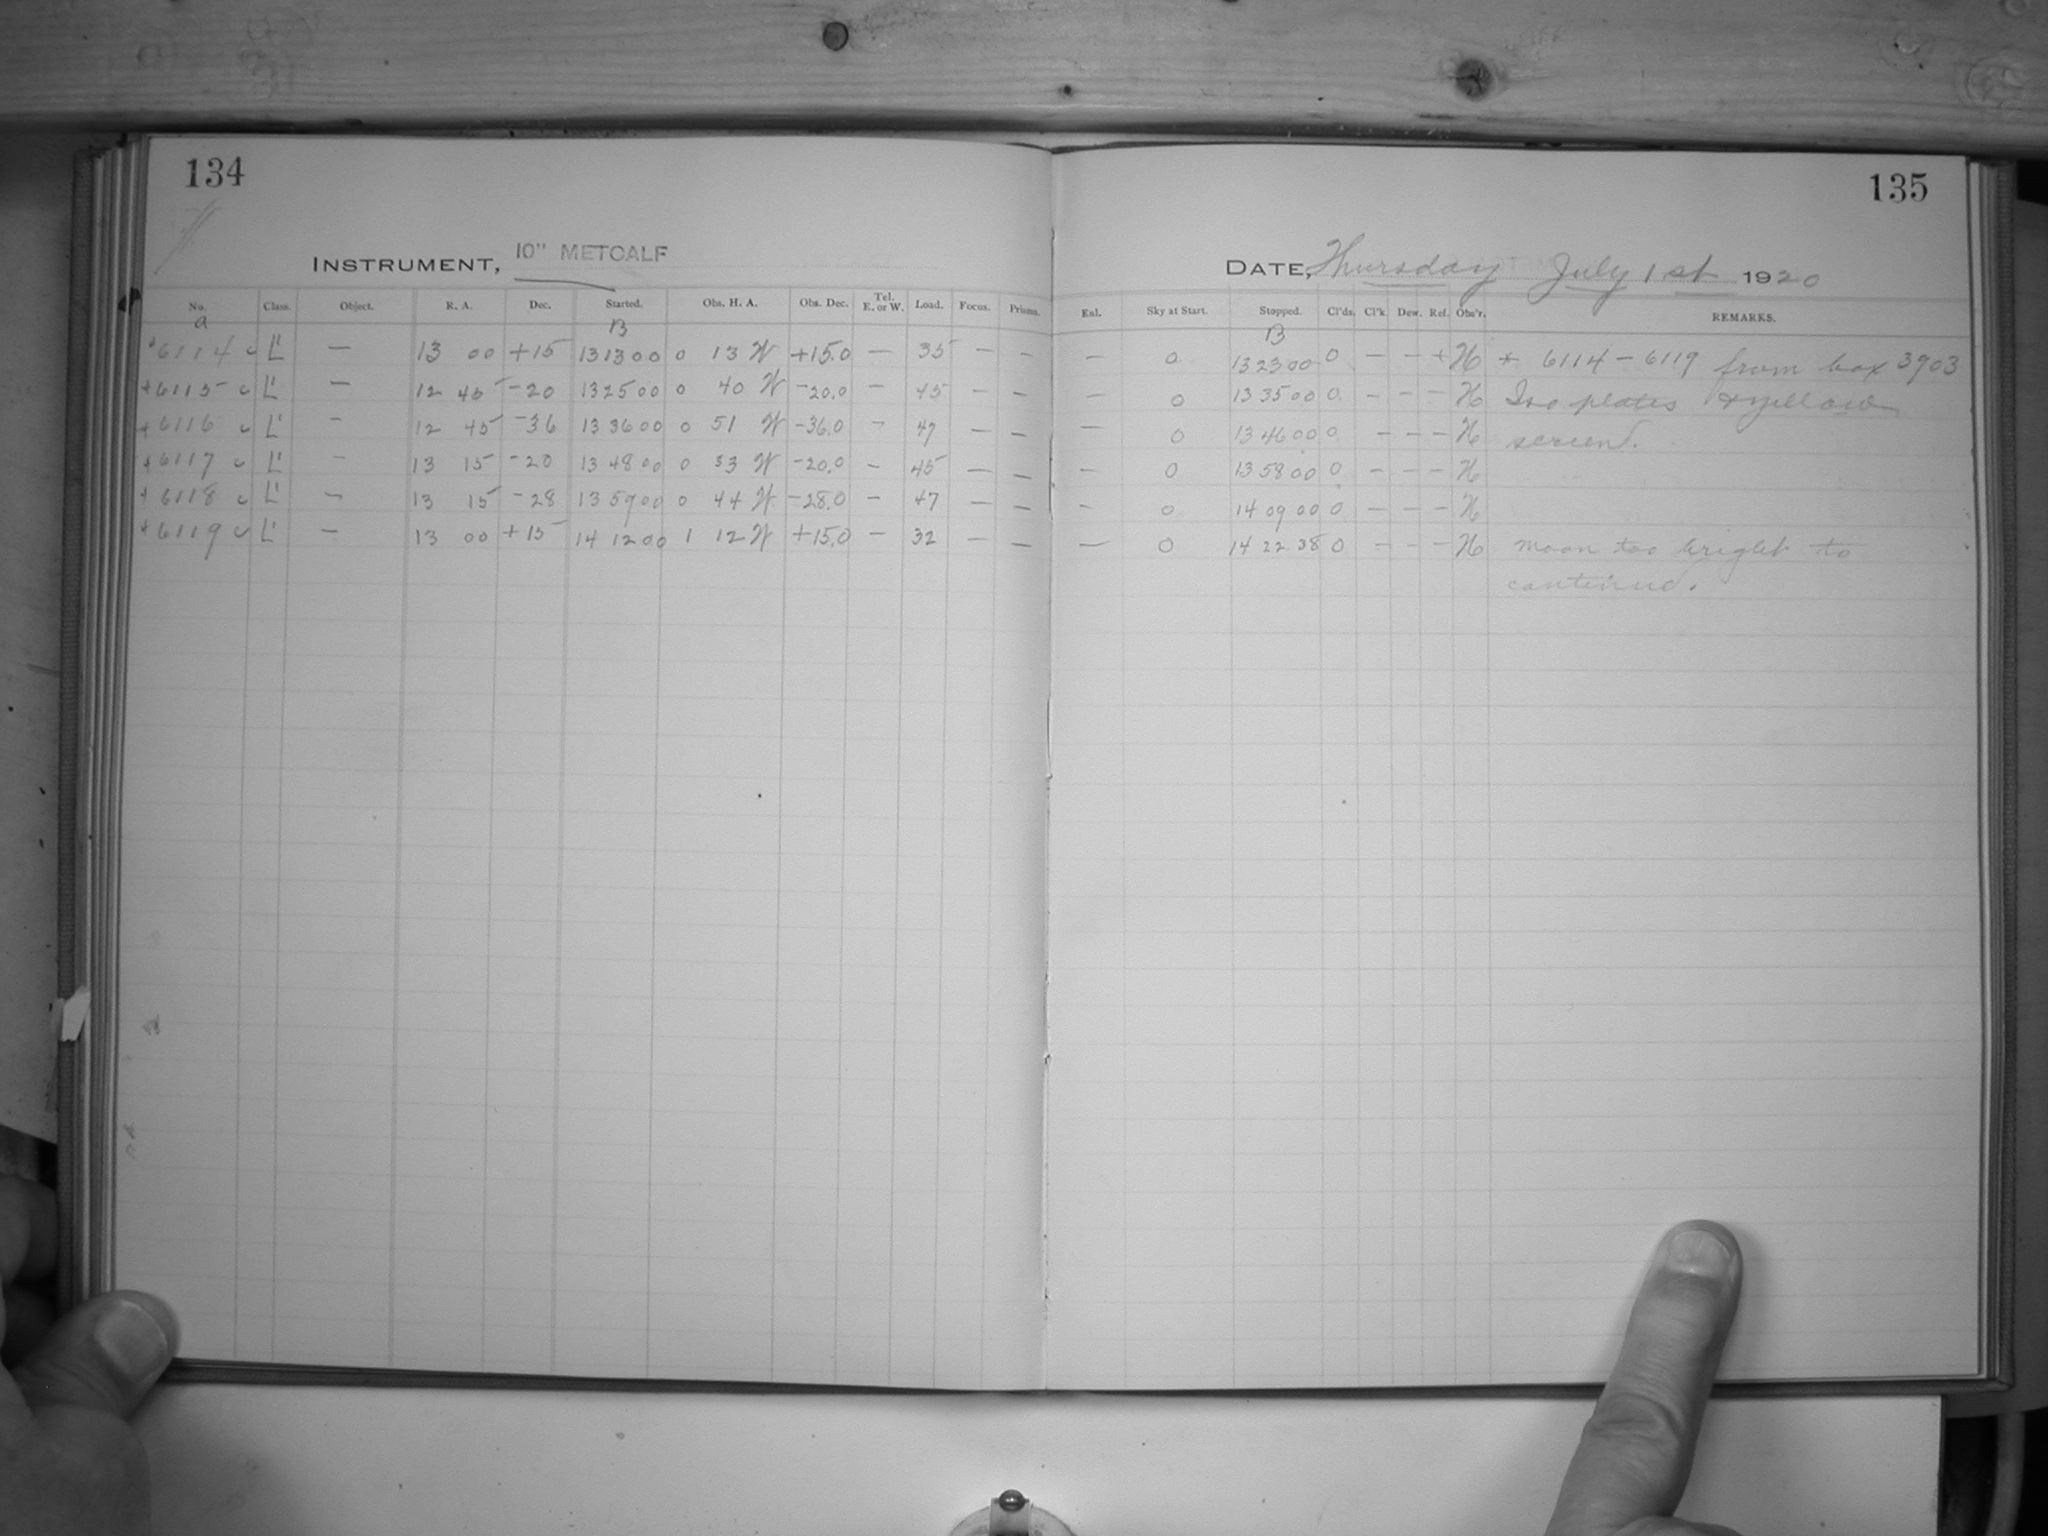 134
INSTRUMENT, 10" METCALF
No. Class. Object. R. A. Dec. Started. Obs. H. A. Obs. Dec. Tel. E. or W. Load. Focus. Prisms.
a B
*6114 c L' — 13 00 +15 13 13 00 0 13 W +15.0 — 35 — —
+6115 c L' — 12 45 -20 13 25 00 0 40 W -20.0 — 45 — —
+6116 c L' — 12 45 -36 13 36 00 0 51 W -36.0 — 47 — —
+6117 c L' — 13 15 -20 13 48 00 0 33 W -20.0 — 45 — —
+6118 c L' — 13 15 -28 13 59 00 0 44 W -28.0 — 47 — —
+6119 c L' — 13 00 +15 14 12 00 1 12 W +15.0 — 32 — —
135
DATE, Thursday July 1st 1920
Enl. Sky at Start. Stopped. Cl'ds. Cl'k. Dew. Ref. Obs'r. REMARKS.
B
— 0 13 23 00 0 — — + H * 6114 — 6119 from box 3903
— 0 13 35 00 0 — — — H Iso plates & yellow
— 0 13 46 00 0 — — — H screen.
— 0 13 58 00 0 — — — H
— 0 14 09 00 0 — — — H
— 0 14 22 38 0 — — — H moon too bright to
continue.